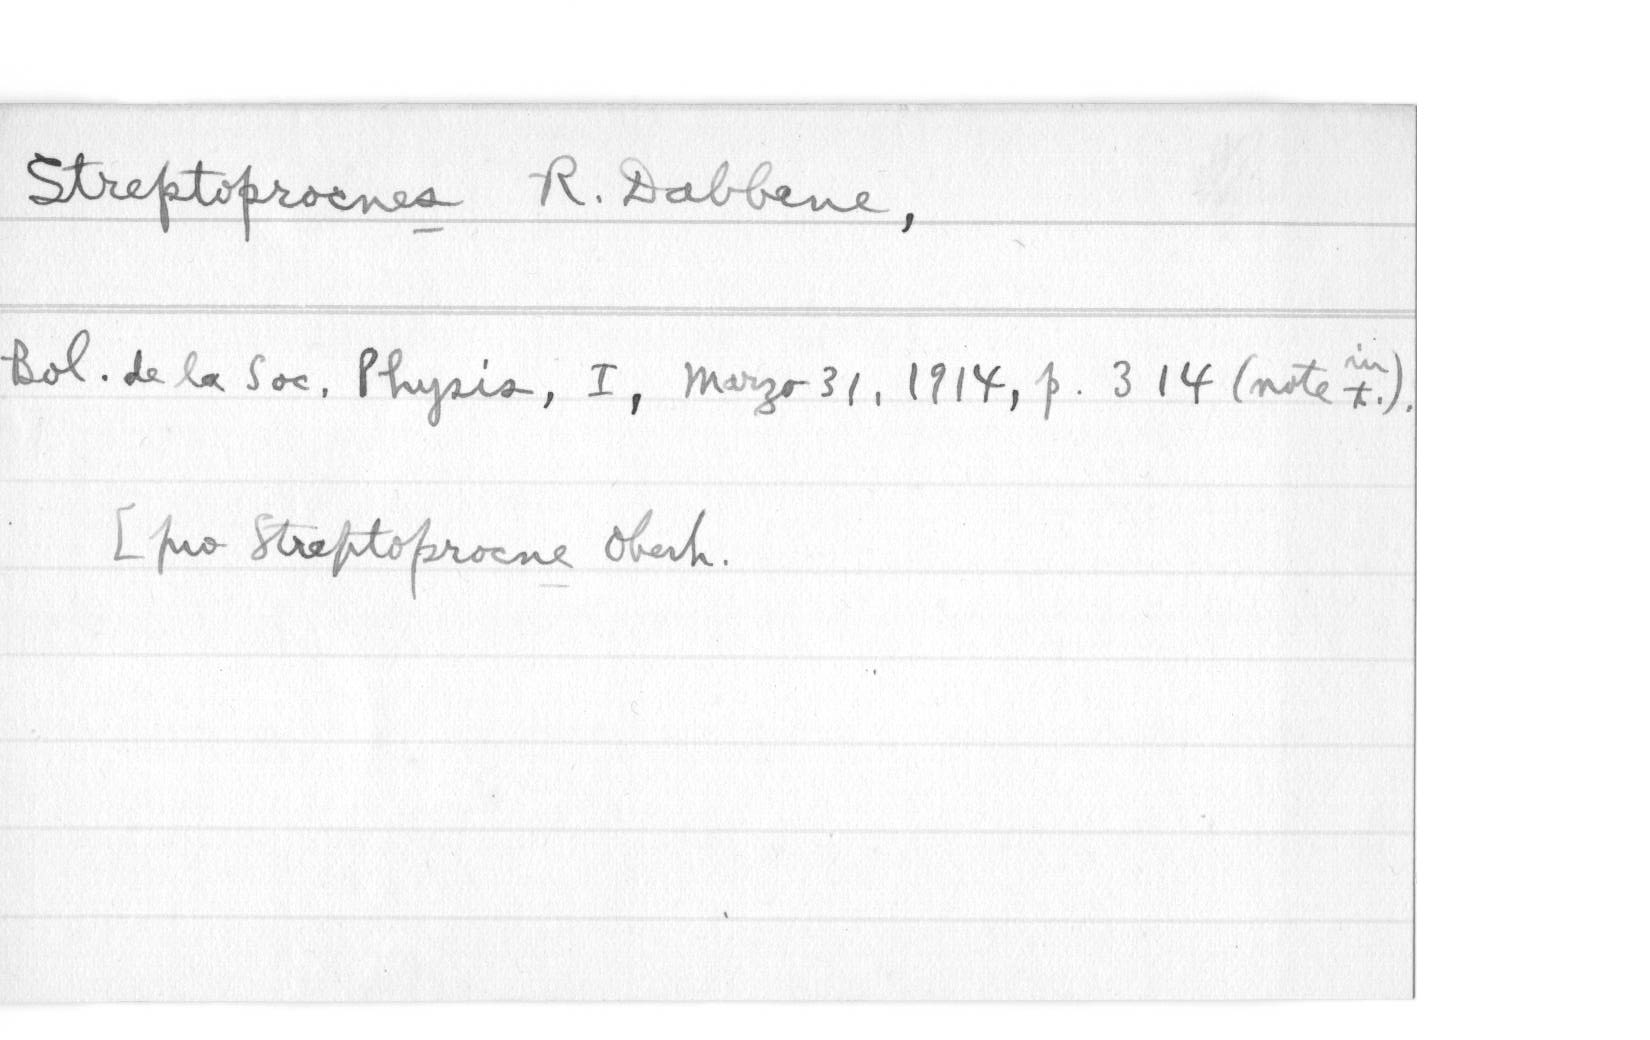 Streptoprocnes R. Dabbene,
Bol. de la Soc. Physis, I, Marzo 31, 1914, p. 314 (note in t.).
[pro Streptoprocne Oberh.